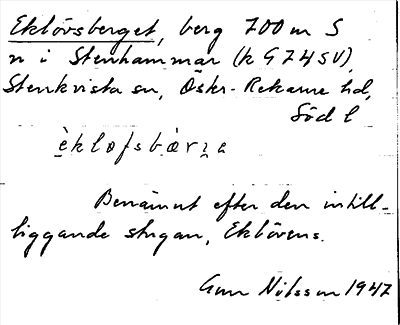 Eklövsberget, berg 700 m S
n i Stenhammar (k G74SV),
Stenkvista sn, Öster-Rekarne hd,
Söd l
Benämnt efter den intill-
liggande stugan, Eklövens.
Gun Nilsson 1947